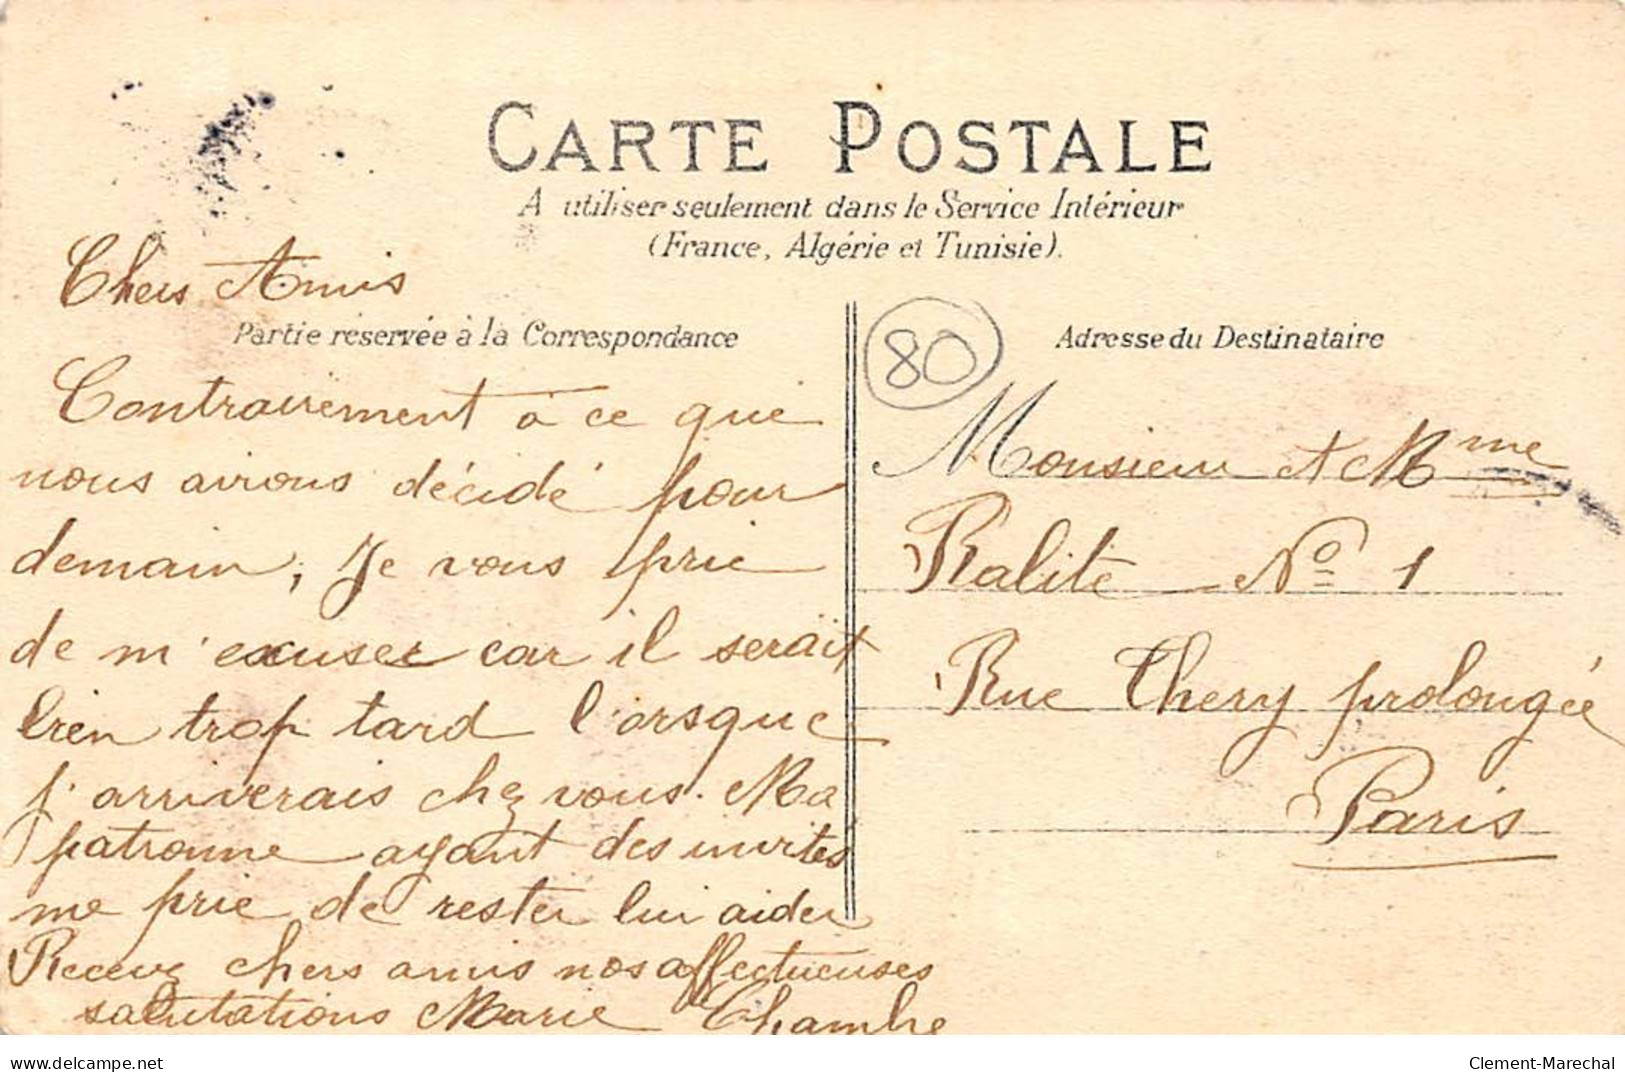 CARTE POSTALE
A utiliser seulement dans le Service Intérieur
(France, Algérie et Tunisie).
Chers Amis
Partie réservée à la Correspondance
Contrairement à ce que
nous avions décidé pour
demain, Je vous prie
de m'excuser car il serait
bien trop tard l'orsque
j'arriverais chez vous. Ma
patronne ayant des invités
me prie de rester lui aider
Recevez chers amis nos affectueuses
salutations Marie Chambe
80
Adresse du Destinataire
Monsieur et Mme
Ralite No 1
Rue Thery prolongée
Paris
delcampe.net
Clement-Marechal